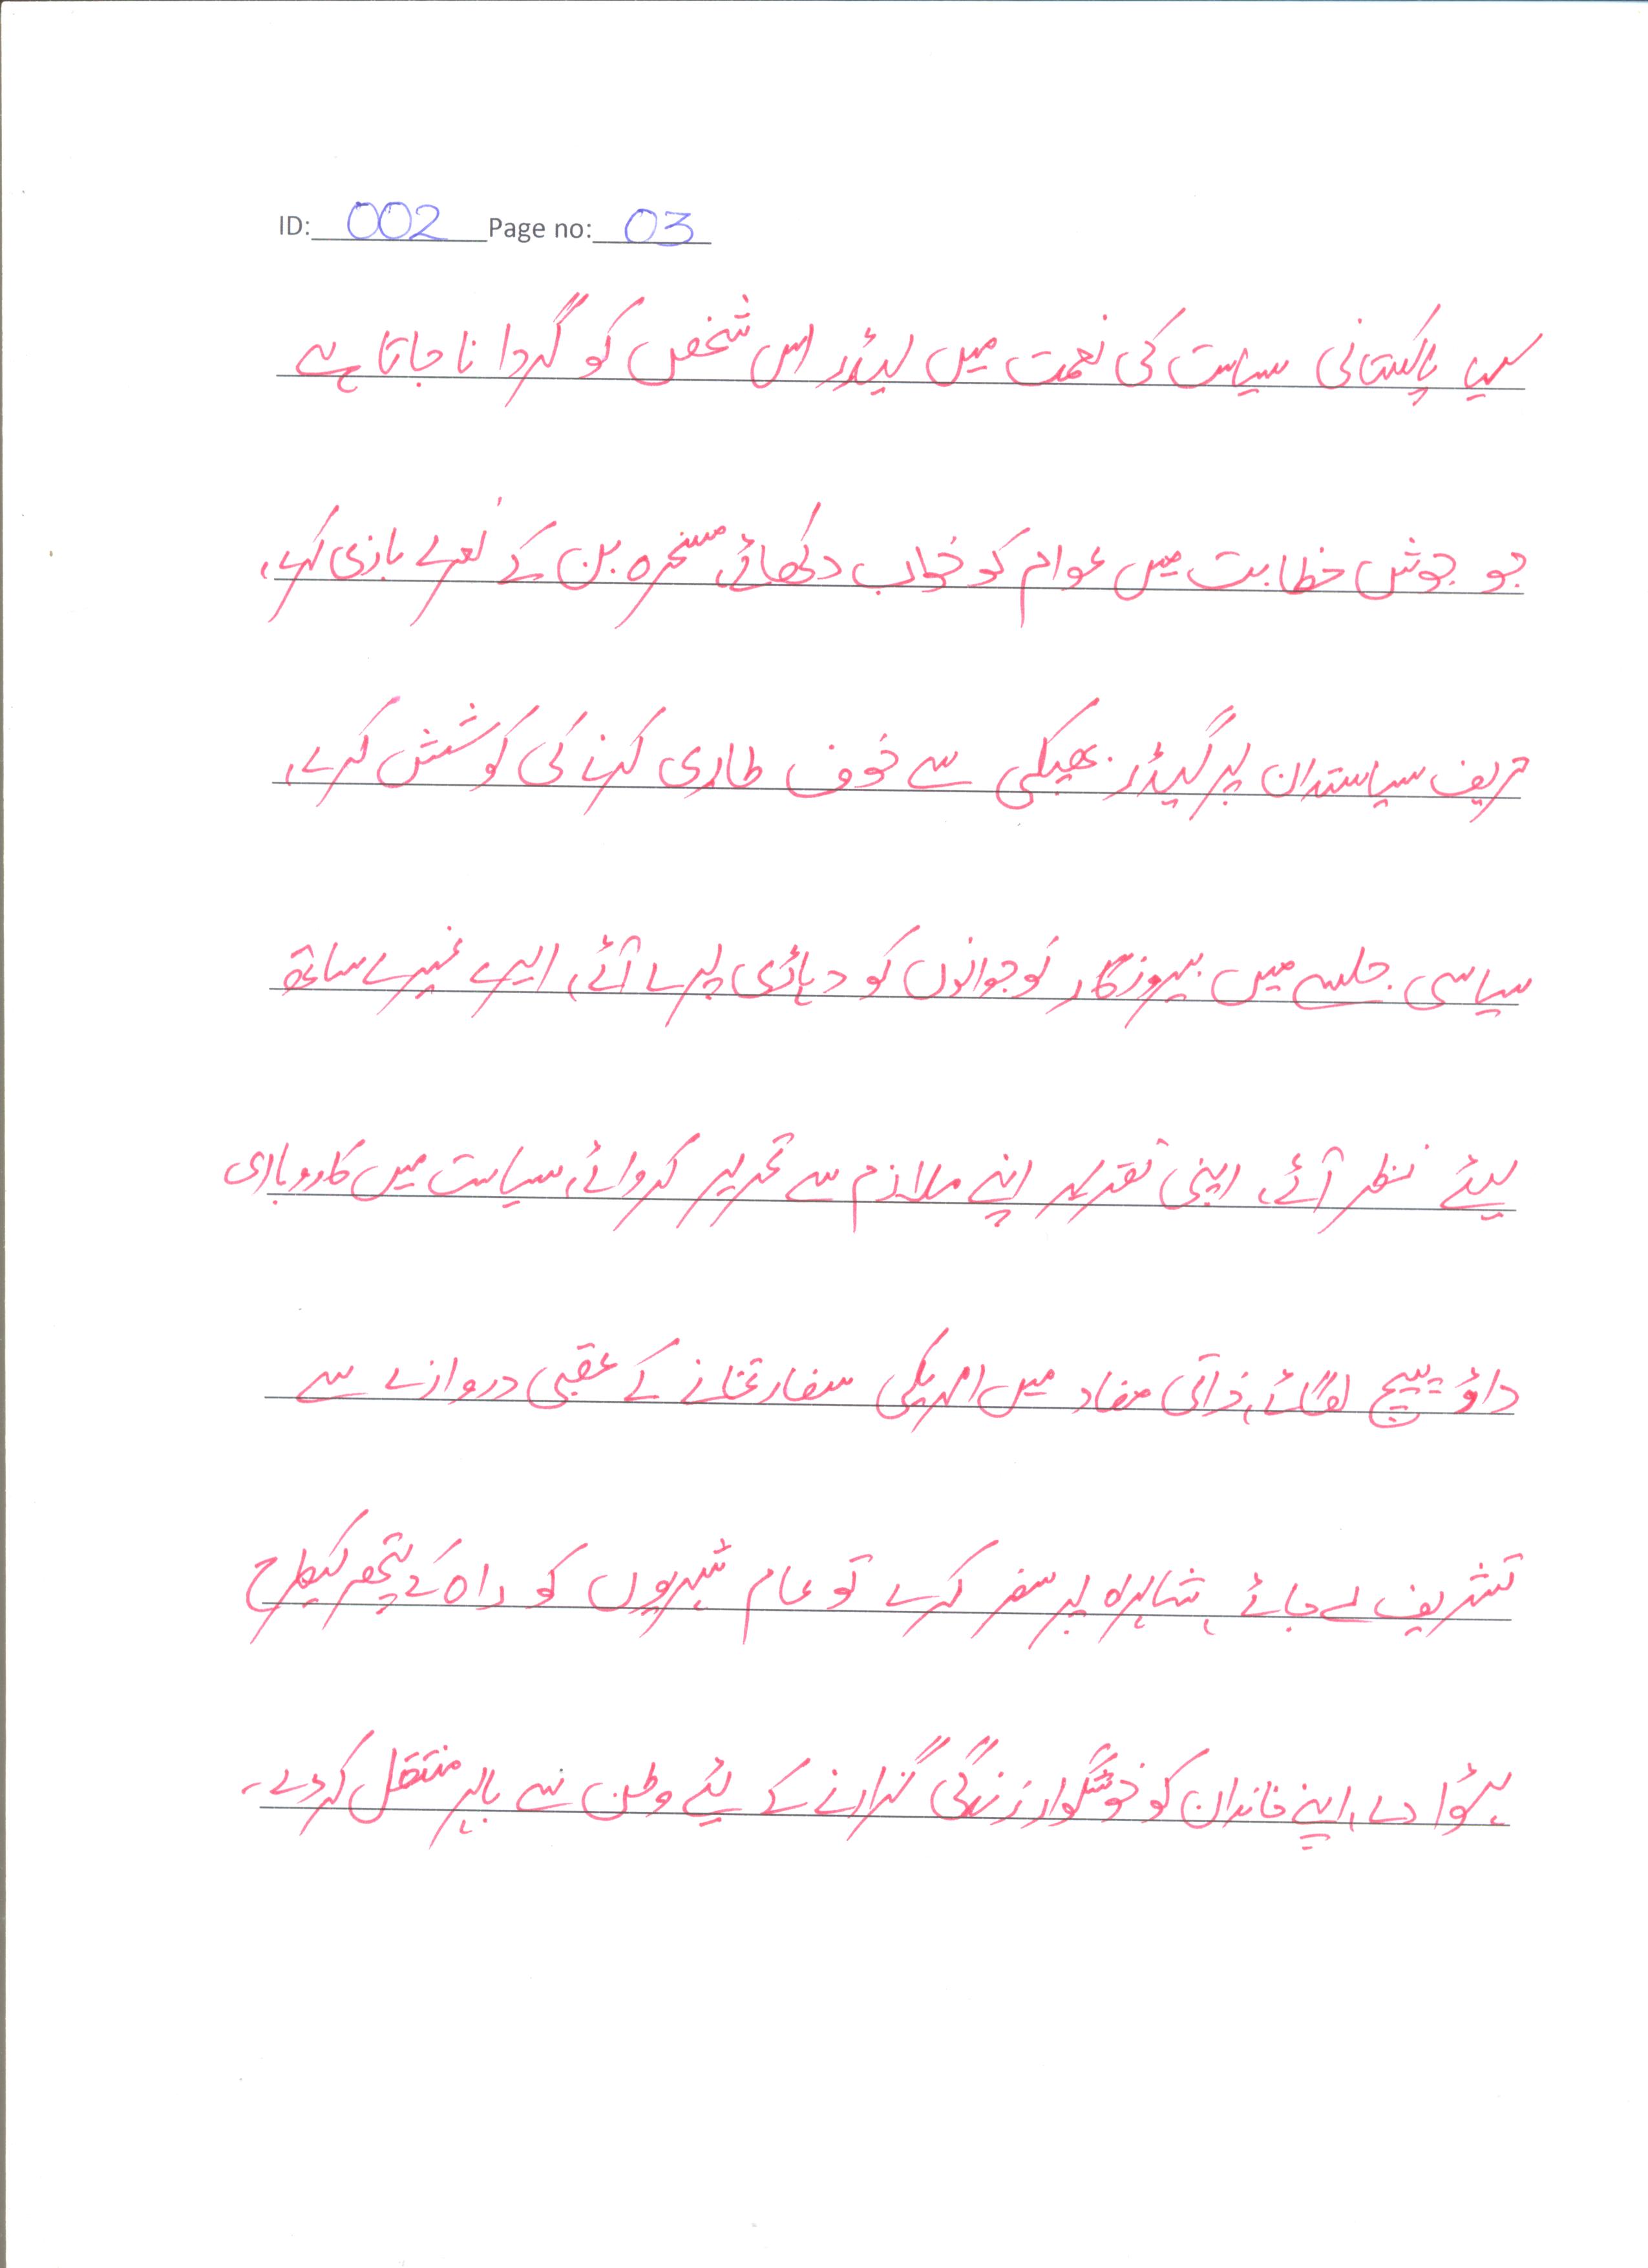 ID: 002 Page no: 03
کیا پاکستانی سیاست کی نعمت میں لیڈر اس شخص کو گردانا جاتا ہے
جو جوش خطابت میں عوام کو خواب دکھائے، مسخرہ بن کے نعرے بازی کرے،
حریف سیاستدان پر گیدڑ بھبکی سے خوف طاری کرنے کی کوشش کرے،
سیاسی جلسے میں بیروزگار نوجوانوں کو دہاڑی پر لے آئے، ایرے غیرے ساتھ
لیئے نظر آئے، اپنی تقریر اپنے ملازم سے تحریر کروائے، سیاست میں کاروباری
داؤ پیچ لگائے، ذاتی مفاد میں امریکی سفارتخانے کے عقبی دروازے سے
تشریف لے جائے، شاہراہ پر سفر کرے تو عام شہریوں کو راہ کے پتھر کیطرح
ہٹوا دے، اپنے خاندان کو خوشگوار زندگی گزارنے کے لیئے وطن سے باہر منتقل کر دے۔